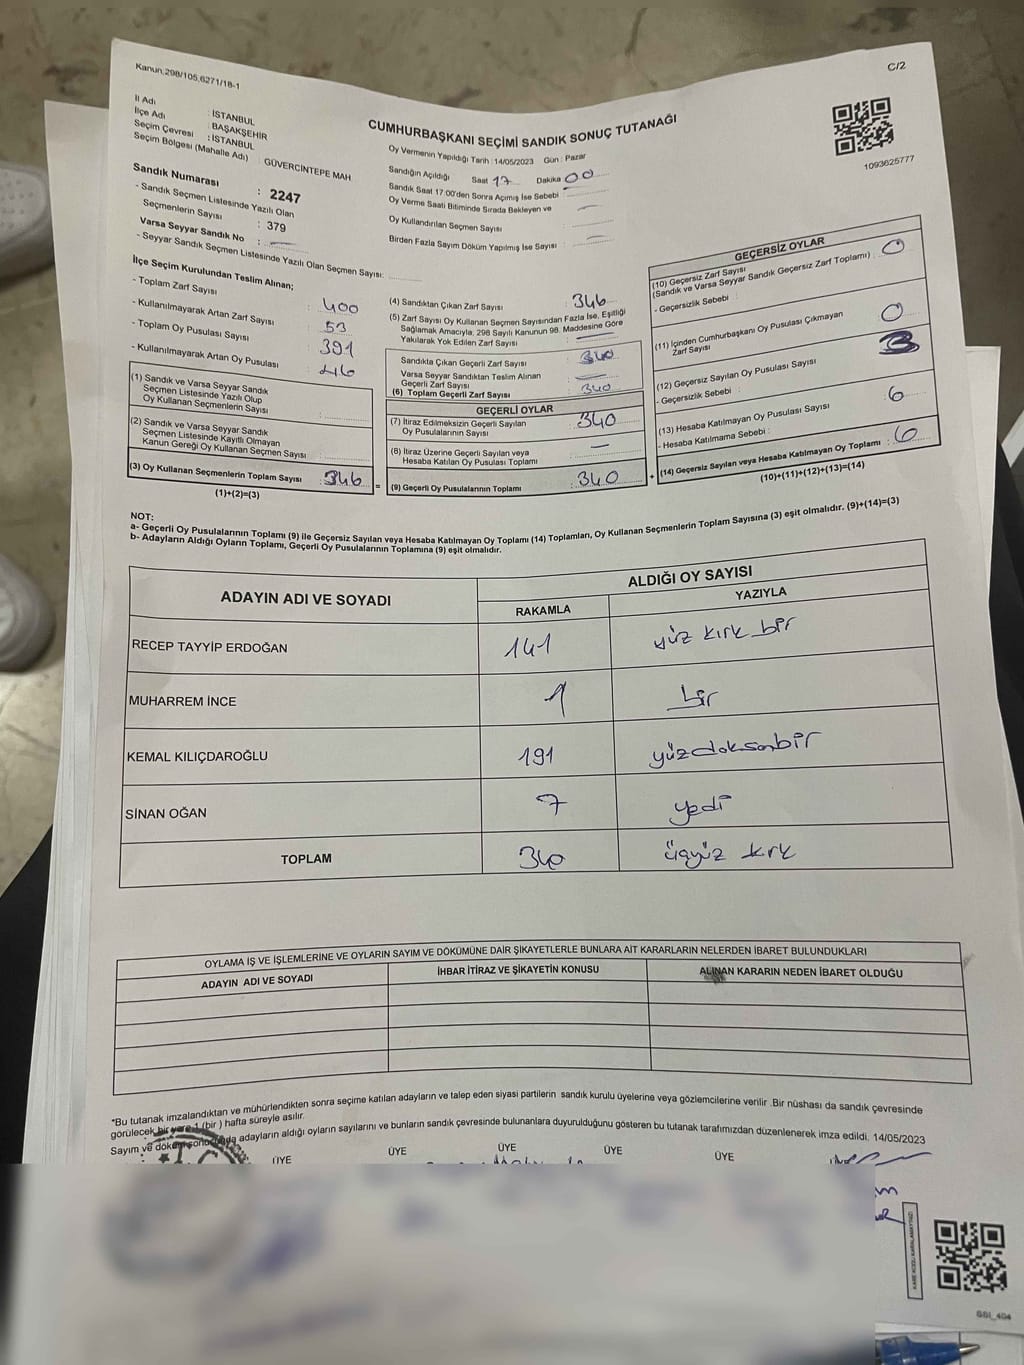 Kanun,298/105,6271/18-1
C/2
İl Adı : İSTANBUL
İlçe Adı : BAŞAKŞEHİR
Seçim Çevresi : İSTANBUL
Seçim Bölgesi (Mahalle Adı) : GÜVERCİNTEPE MAH
Sandık Numarası : 2247
- Sandık Seçmen Listesinde Yazılı Olan
Seçmenlerin Sayısı : 379
Varsa Seyyar Sandık No : —
- Seyyar Sandık Seçmen Listesinde Yazılı Olan Seçmen Sayısı:
CUMHURBAŞKANI SEÇİMİ SANDIK SONUÇ TUTANAĞI
Oy Vermenin Yapıldığı Tarih : 14/05/2023 Gün : Pazar
Sandığın Açıldığı Saat 17 Dakika 00
Sandık Saat 17:00'den Sonra Açımış İse Sebebi : —
Oy Verme Saati Bitiminde Sırada Bekleyen ve
Oy Kullandırılan Seçmen Sayısı : —
Birden Fazla Sayım Döküm Yapılmış İse Sayısı : —
1093625777
İlçe Seçim Kurulundan Teslim Alınan;
- Toplam Zarf Sayısı : 400
- Kullanılmayarak Artan Zarf Sayısı : 53
- Toplam Oy Pusulası Sayısı : 391
- Kullanılmayarak Artan Oy Pusulası : 46
(1) Sandık ve Varsa Seyyar Sandık
Seçmen Listesinde Yazılı Olup
Oy Kullanan Seçmenlerin Sayısı :
(2) Sandık ve Varsa Seyyar Sandık
Seçmen Listesinde Kayıtlı Olmayan
Kanun Gereği Oy Kullanan Seçmen Sayısı :
(3) Oy Kullanan Seçmenlerin Toplam Sayısı : 346
(1)+(2)=(3)
(4) Sandıktan Çıkan Zarf Sayısı : 346
(5) Zarf Sayısı Oy Kullanan Seçmen Sayısından Fazla İse, Eşitliği
Sağlamak Amacıyla; 298 Sayılı Kanunun 98. Maddesine Göre
Yakılarak Yok Edilen Zarf Sayısı : —
Sandıkta Çıkan Geçerli Zarf Sayısı : 340
Varsa Seyyar Sandıktan Teslim Alınan
Geçerli Zarf Sayısı : —
(6) Toplam Geçerli Zarf Sayısı : 340
GEÇERLİ OYLAR
(7) İtiraz Edilmeksizin Geçerli Sayılan
Oy Pusulalarının Sayısı : 340
(8) İtiraz Üzerine Geçerli Sayılan veya
Hesaba Katılan Oy Pusulası Toplamı : —
= (9) Geçerli Oy Pusulalarının Toplamı : 340
GEÇERSİZ OYLAR
(10) Geçersiz Zarf Sayısı
(Sandık ve Varsa Seyyar Sandık Geçersiz Zarf Toplamı) : 0
- Geçersizlik Sebebi :
(11) İçinden Cumhurbaşkanı Oy Pusulası Çıkmayan
Zarf Sayısı : 0
(12) Geçersiz Sayılan Oy Pusulası Sayısı
- Geçersizlik Sebebi :
(13) Hesaba Katılmayan Oy Pusulası Sayısı : 6
- Hesaba Katılmama Sebebi :
+ (14) Geçersiz Sayılan veya Hesaba Katılmayan Oy Toplamı : 6
(10)+(11)+(12)+(13)=(14)
NOT:
a- Geçerli Oy Pusulalarının Toplamı (9) ile Geçersiz Sayılan veya Hesaba Katılmayan Oy Toplamı (14) Toplamları, Oy Kullanan Seçmenlerin Toplam Sayısına (3) eşit olmalıdır. (9)+(14)=(3)
b- Adayların Aldığı Oyların Toplamı, Geçerli Oy Pusulalarının Toplamına (9) eşit olmalıdır.
ADAYIN ADI VE SOYADI
ALDIĞI OY SAYISI
RAKAMLA YAZIYLA
RECEP TAYYİP ERDOĞAN 141 yüz kırk bir
MUHARREM İNCE 1 bir
KEMAL KILIÇDAROĞLU 191 yüzdoksanbir
SİNAN OĞAN 7 yedi
TOPLAM 340 üçyüz kırk
OYLAMA İŞ VE İŞLEMLERİNE VE OYLARIN SAYIM VE DÖKÜMÜNE DAİR ŞİKAYETLERLE BUNLARA AİT KARARLARIN NELERDEN İBARET BULUNDUKLARI
ADAYIN ADI VE SOYADI İHBAR İTİRAZ VE ŞİKAYETİN KONUSU ALINAN KARARIN NEDEN İBARET OLDUĞU
*Bu tutanak imzalandıktan ve mühürlendikten sonra seçime katılan adayların ve talep eden siyasi partilerin sandık kurulu üyelerine veya gözlemcilerine verilir .Bir nüshası da sandık çevresinde
görülecek bir yere 1 (bir ) hafta süreyle asılır.
Sayım ve döküm sonucunda adayların aldığı oyların sayılarını ve bunların sandık çevresinde bulunanlara duyurulduğunu gösteren bu tutanak tarafımızdan düzenlenerek imza edildi. 14/05/2023
ÜYE ÜYE ÜYE ÜYE ÜYE
GSI_404